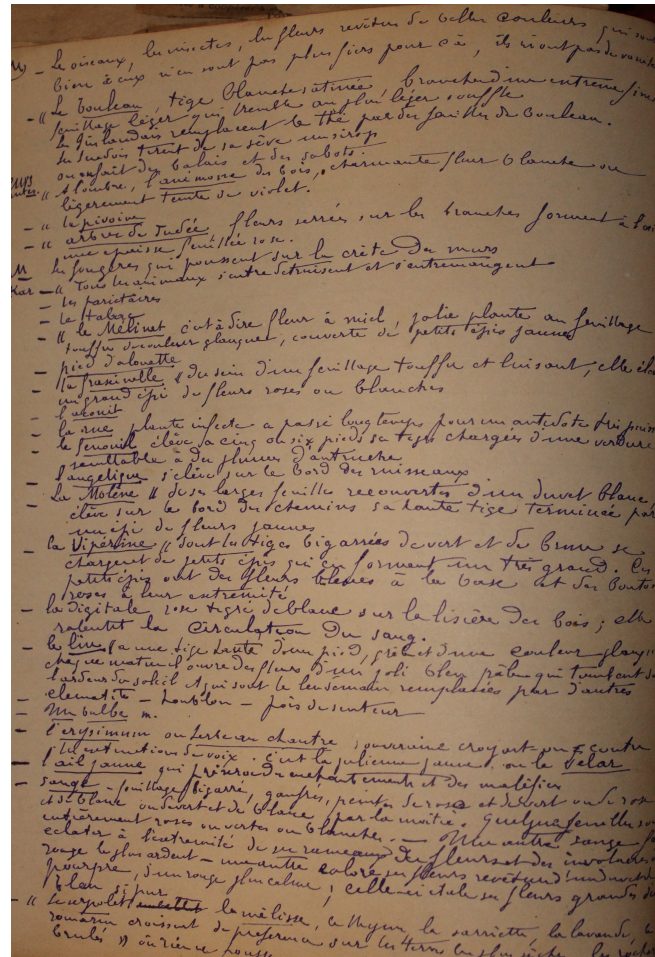 - Les oiseaux, les insectes, les fleurs revêtus de belles couleurs qui sont
bien à eux n'en sont pas plus fiers pour cela, ils n'ont pas de vanité
- " Le bouleau, tige blanche satinée, branches d'une extrême finesse
feuillage léger qui tremble au plus léger souffle
les remplacent le thé par des feuilles de bouleau.
les Suédois tirent de sa sève un sirop
on en fait des balais et des sabots.
" A l'ombre, l'anémone des bois, charmante fleur blanche ou
légèrement teinte de violet.
- " la pivoine
- " arbre de Judée fleurs serrées sur les branches forment à l'
une épaisse feuillée rose.
les fougères qui poussent sur la crête des murs
- " Tous les animaux s'entre détruisent et s'entremangent
- les pariétaires
- le
- " le Mélinet, c'est à dire fleur à miel, jolie plante au feuillage
touffu de couleur glauque, couverte de petits épis jaunes
- pied d'alouette
- la fraxinelle " du sein d'un feuillage touffu et luisant, elle élève
un grand épi de fleurs roses ou blanches
- l'aconit
- la rue plante infecte a passé longtemps pour un antidote
- le fenouil élève à cinq ou six pieds sa tige chargée d'une verdure
semblable à des plumes d'autruche
- l'angélique s'élève sur le bord des ruisseaux
- La Molène " de ses larges feuilles recouvertes d'un duvet blanc,
élève sur le bord des chemins sa haute tige terminée par
un épi de fleurs jaunes
- la Vipérine " dont les tiges bigarrées de vert et de brun se
chargent de petits épis qui en forment un très grand. Ces
petits épis ont des fleurs bleues à la base et des boutons
roses à leur extrémité
- la digitale rose tigré de blanc sur la lisière des bois ; elle
ralentit la circulation du sang.
- le lin, a une tige haute d'un pied, grêle et d'une couleur glauque
chaque matin il ouvre des fleurs d'un joli bleu pâle qui tombent
l'ardeur du soleil et qui sont le lendemain remplacées par d'autres
- clématite - houblon - pois de senteur
- Un bulbe m.
- l'erysimum ou herbe au chantre, souveraine croyait-on contre
les extinctions de voix. c'est la julienne jaune ou le vélar
- l'ail jaune qui préserve des enchantements et des maléfices
- sauge - feuillage bigarré, gaufré, peint de rose et de vert ou de rose
et de blanc ou de vert et de blanc, par la moitié. Quelques feuilles sont
entièrement roses ou vertes ou blanches. - Une autre sauge fait
éclater à l'extrémité de ses rameaux des fleurs et des involucres
rouge le plus ardent - une autre colore ses fleurs revêtues d'un duvet de
pourpre, d'un rouge plus calme ; celle-ci étale ses fleurs grandes
bleu si pur
- " Le serpolet la mélisse, le thym, la sarriette, la lavande, le
romarin croissent de préférence sur les terres les plus sèches, les rochers
brûlés " où rien ne pousse